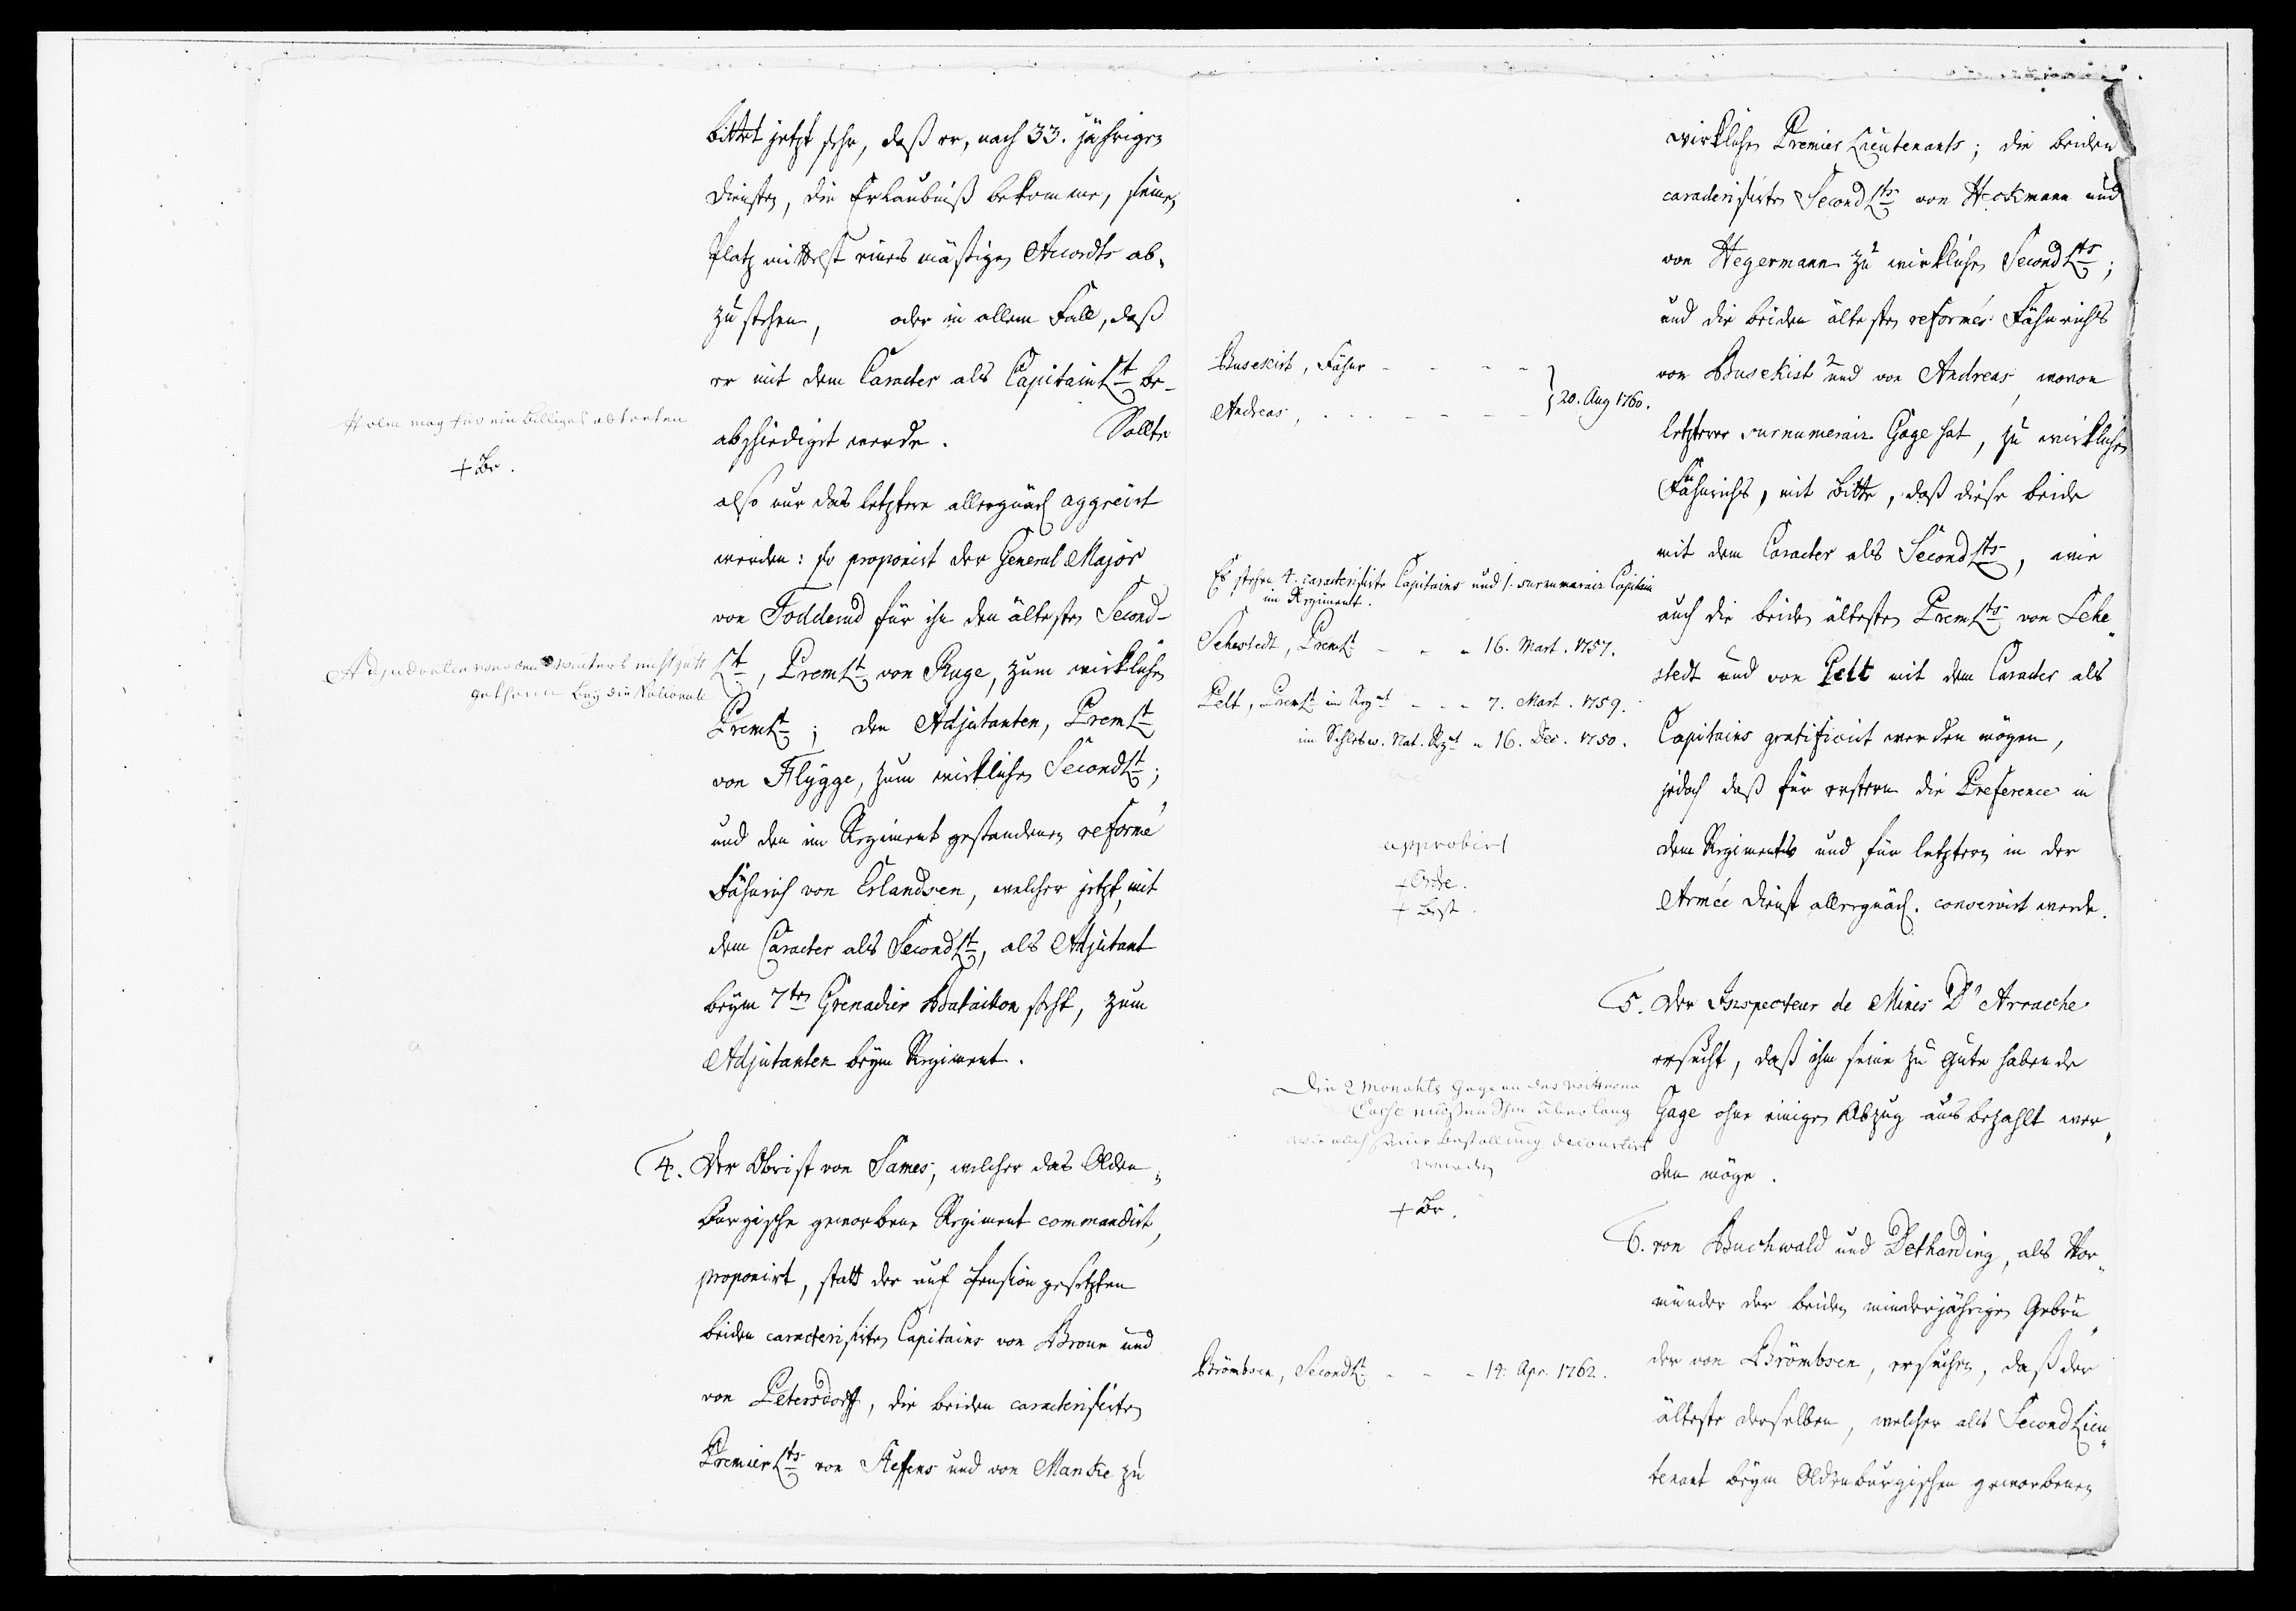 bittet jetzt sehr, daß er, nach 33. jährigen
Diensten, die Erlaubniß bekomme, seinen
Platz mittelst eines mäßigen Accordts ab-
zustehen, oder in allem Fall, daß
er mit dem Caracter als Capitain Lt be-
abschiediget werde. Sollte
also nur das letztere allergnäd aggreirt
werden: so proponirt der General Major
von Foddernd für ihn den ältesten Second-
Lt, Prem Lt von Ruge, zum wirklichen
Prem Lt; den Adjutanten, Prem Lt
von Flügge, zum wirklichen Second Lt;
und den im Regiment gestandenen reformé
Fähnrich von Erlandsen, welcher jetzt, mit
dem Caracter als Second Lt, als Adjutant
beym 7ten Grenadier Bataillon steht, zum
Adjutanten beym Regiment.
Holm mag für ein billiges abtreten
+ Br.
Adjudanten werden
gethan bey die Nationale
4. Der Obrist von Sames, welcher das Olden-
burgische geworbene Regiment commandirt,
proponirt, statt der auf Pension gesetzten
beiden caracterisirten Capitains von Broun und
von Petersdorff, die beiden caracterisirten
Premier Lts von Steffens und von Manske zu
wirklichen Premier Lieutenants; die beiden
caracterisirten Second Lts von Heckmann und
von Hegermann zu wirklichen Second Lts;
und die beiden ältesten reformés Fähnrichs
von Busekist und von Andreas, wovon
letzterer surnumerair Gage hat, zu wirklichen
Fähnrichs, mit Bitte, daß diese beide
mit dem Caracter als Second Lts, wie
auch die beiden ältesten Prem Lts von Sehe-
stedt und von Pelt mit dem Caracter als
Capitains gratificirt werden mögen,
jedoch daß für erstern die Preference in
dem Regiment und für letztern in der
Armée Dienst allergnäd. conservirt werde.
Busekist, Fähnr - - - -
Andreas, - - - - - - } 20. Aug 1760.
Es stehen 4. caracterisirte Capitains und 1. surnumerair Capitain
im Regiment.
Sehestedt, Prem Lt - - - 16. Mart. 1757.
Pelt, Prem Lt im Regt - - - 7. Mart. 1759.
im Schlesw. Nat. Regt - 16. Dec. 1750.
approbirt
+ Ordre.
+ Best.
5. Der Inspecteur de Mines D'Arrache
ersucht, daß ihm seine zu gute habende
Gage ohne einigen Abzug ausbezahlt wer-
den möge.
Die 2 Monahts Gage an das
Casse müssen Ihm
wie auch seine Bestallung decourtirt
werden
+ Br.
6. von Buchwald und Detharding, als Vor-
münder der beiden minderjährigen Gebrü-
der von Brömbsen, ersuchen, daß der
älteste derselben, welcher als Second Lieu-
tenant beym Oldenburgischen geworbenen
Brömbsen, Second Lt - - - 14. Apr. 1762.